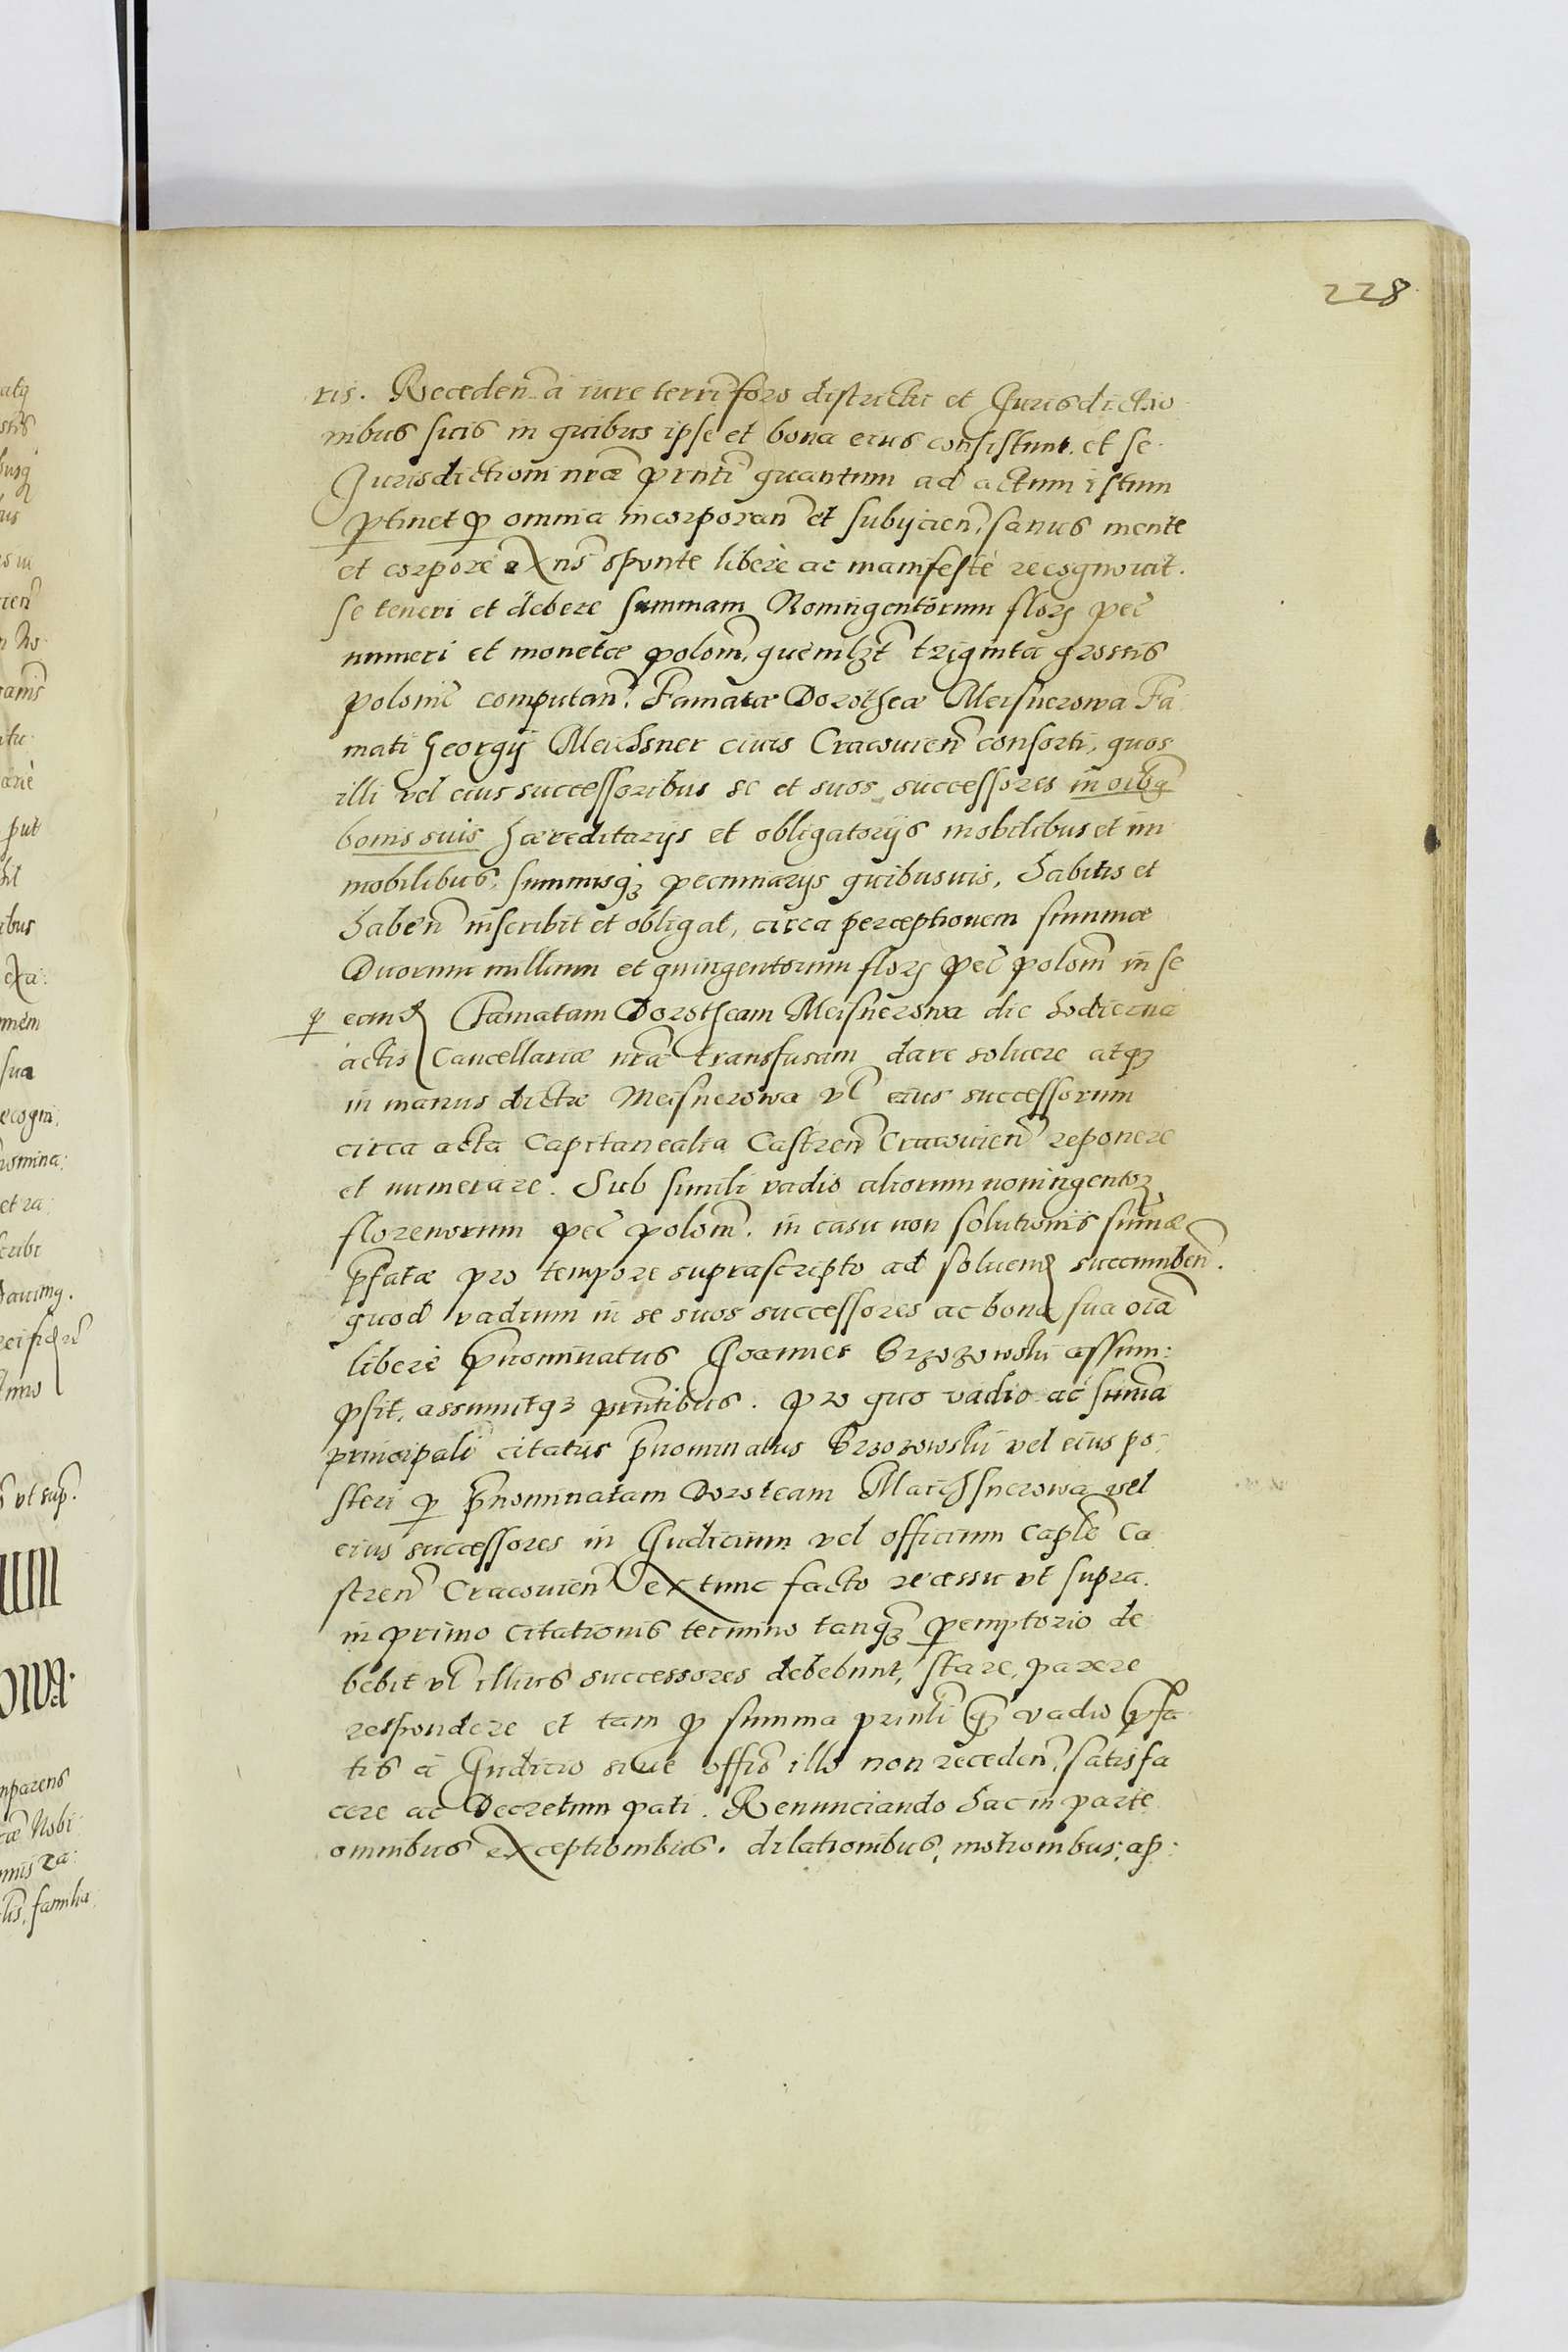 228
ris. Receden̄ a iure terri foro districtu et Jurisdictio
nibus suis in quibus ipse et bona eius consistunt. et se
Jurisdictioni nræ prnti quantum ad actum istum
ptinet p omnia incorporan̄ et subijcien̄, sanus mente
et corpore exns sponte liberè ac manifestè recognouit.
se teneri et debere summam Noningentorum florꝫ pec̄
numeri et monetæ polon̄, quēmlꝫt triginta grossis
polonic̄ computan̄. Famatæ Dorotheæ Meisnerowa Fa
mati Georgij Meichsner ciuis Cracouien̄ consorti, quos
illi vel eius successoribus se et suos successores in oibꝫ
bonis suis hæreditarijs et obligatorijs mobilibus et im
mobilibus, summisqꝫ pecuniarijs quibusuis, habitis et
haben̄ inscribit et obligat, circa perceptionem summæ
Duorum millium et quingentorum florꝫ pec̄ polon̄ in se
p eand Famatam Dorotheam Meisnerowa die hodierna
actis Cancellariæ nræ transfusam dare soluere atqꝫ
in manus dictæ Meisnerowa vl eius successorum
circa acta Capitanealia Castren̄ Cracouien̄ reponere
et numerare. Sub simili vadio aliorum noningentorꝫ
florenorum pec̄ polon̄. in casu non solutionis sum̄æ
p̄fatæ pro tempore suprascripto ad soluend succumben̄.
quod vadium in se suos successores ac bona sua oīa
liberè p̄nominatus Joannes Brzozowski assum:
psit, assumitqꝫ pñtibus. Pro quo vadio ac sum̄a
principali citatus p̄nominatus Brzozowski vel eius po:
steri p p̄nominatam Doroteam Maichsnerowa vel
eius successores in Judicium vel officium Caplē Ca
stren̄ Cracouien̄ extunc facto recessu vt supra.
in primo citationis termino tanqꝫ pemptorio de
bebit vl illius successores debebunt, stare, parere
respondere et tam p summa prinli qꝫ vadio p̄fa
tis à Judicio siue offic̄ illo non receden̄, satisfa
cere ac Decretum pati. Renunciando hac in parte
omnibus exceptionibus. dilationibus, motionibus, ap: